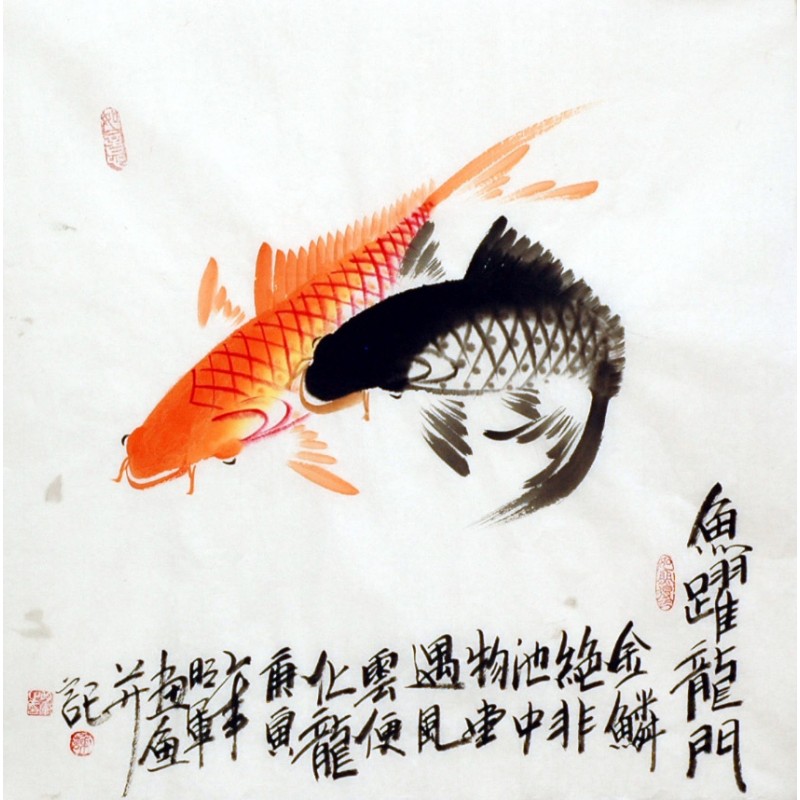 魚躍龍門
金鱗
絕非
池中
物
遇風
雲便
化龍
庚寅
年
昭軍
畫魚
并
記